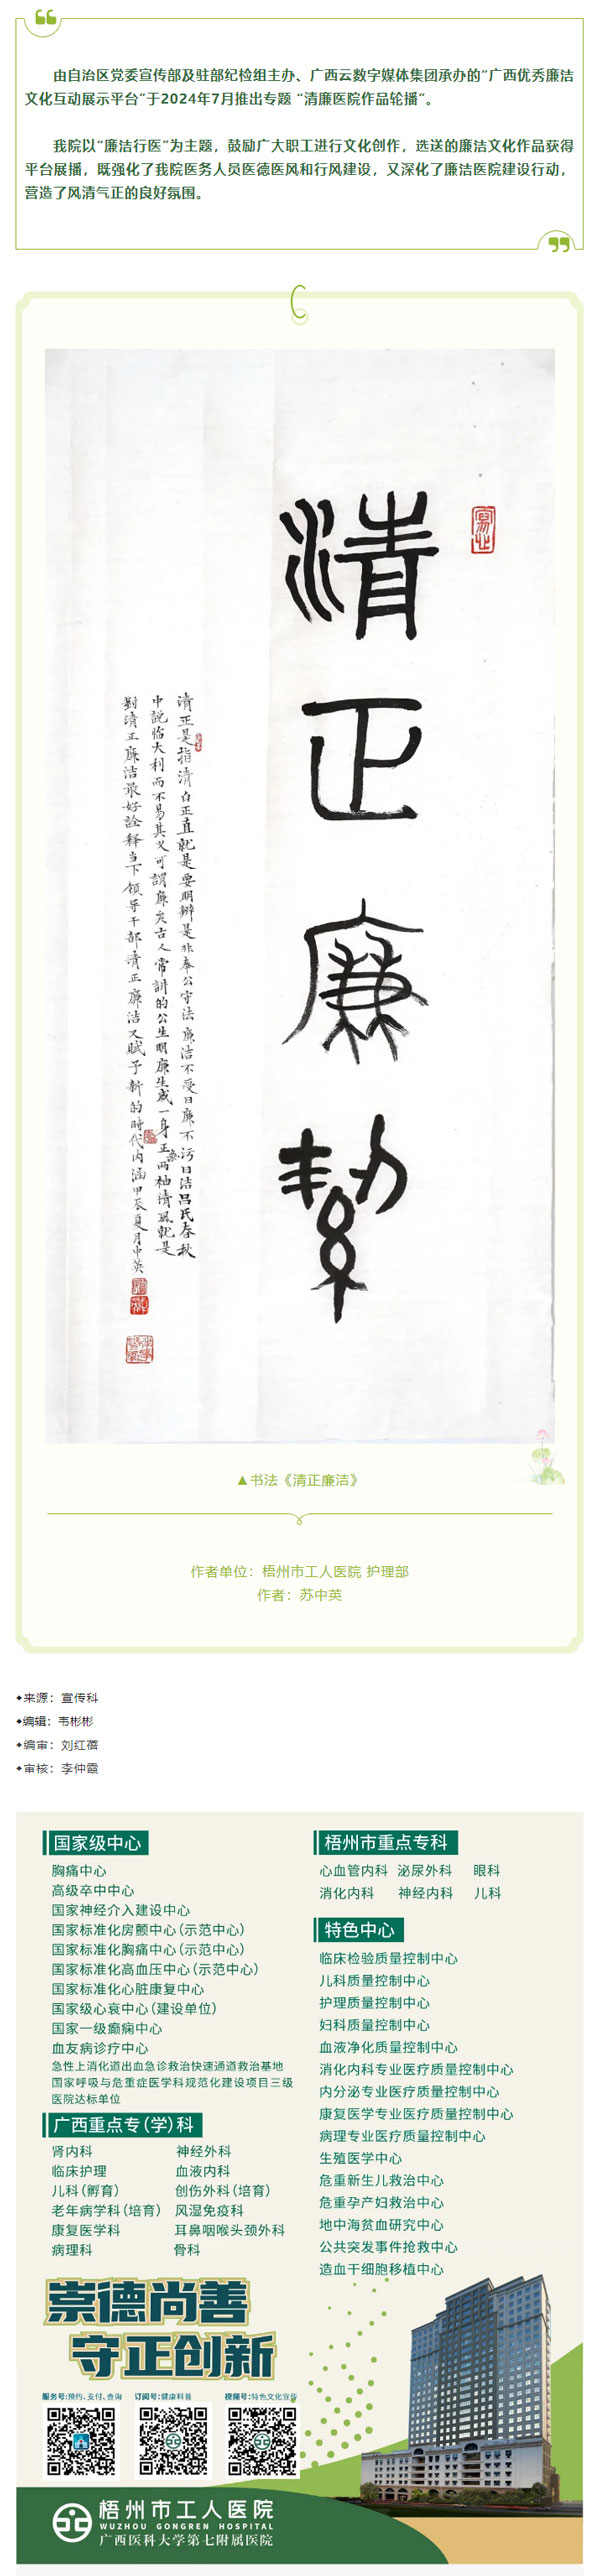 由自治区党委宣传部及驻部纪检组主办、广西云数字媒体集团承办的“广西优秀廉洁
文化互动展示平台”于2024年7月推出专题 “清廉医院作品轮播”。
我院以“廉洁行医”为主题，鼓励广大职工进行文化创作，选送的廉洁文化作品获得
平台展播，既强化了我院医务人员医德医风和行风建设，又深化了廉洁医院建设行动，
营造了风清气正的良好氛围。
清正廉絜
清正是指清白正直就是要明辨是非奉公守法廉洁不受曰廉不污曰洁吕氏春秋
中説临大利而不易其义可謂廉矣古人常講的公生明廉生威一身正两袖清風就是
對清正廉洁最好詮释当下领导干部清正廉洁又赋予新的時代内涵甲辰夏月中英
▲书法《清正廉洁》
作者单位：梧州市工人医院 护理部
作者：苏中英
◆来源：宣传科
◆编辑：韦彬彬
◆编审：刘红蓓
◆审核：李仲霞
国家级中心
胸痛中心
高级卒中中心
国家神经介入建设中心
国家标准化房颤中心(示范中心)
国家标准化胸痛中心(示范中心)
国家标准化高血压中心(示范中心)
国家标准化心脏康复中心
国家级心衰中心(建设单位)
国家一级癫痫中心
血友病诊疗中心
急性上消化道出血急诊救治快速通道救治基地
国家呼吸与危重症医学科规范化建设项目三级
医院达标单位
广西重点专(学)科
肾内科 神经外科
临床护理 血液内科
儿科(孵育) 创伤外科(培育)
老年病学科(培育) 风湿免疫科
康复医学科 耳鼻咽喉头颈外科
病理科 骨科
梧州市重点专科
心血管内科 泌尿外科 眼科
消化内科 神经内科 儿科
特色中心
临床检验质量控制中心
儿科质量控制中心
护理质量控制中心
妇科质量控制中心
血液净化质量控制中心
消化内科专业医疗质量控制中心
内分泌专业医疗质量控制中心
康复医学专业医疗质量控制中心
病理专业医疗质量控制中心
生殖医学中心
危重新生儿救治中心
危重孕产妇救治中心
地中海贫血研究中心
公共突发事件抢救中心
造血干细胞移植中心
崇德尚善
守正创新
服务号:预约、支付、查询 订阅号:健康科普 视频号:特色文化宣传
梧州市工人医院
WUZHOU GONGREN HOSPITAL
广西医科大学第七附属医院